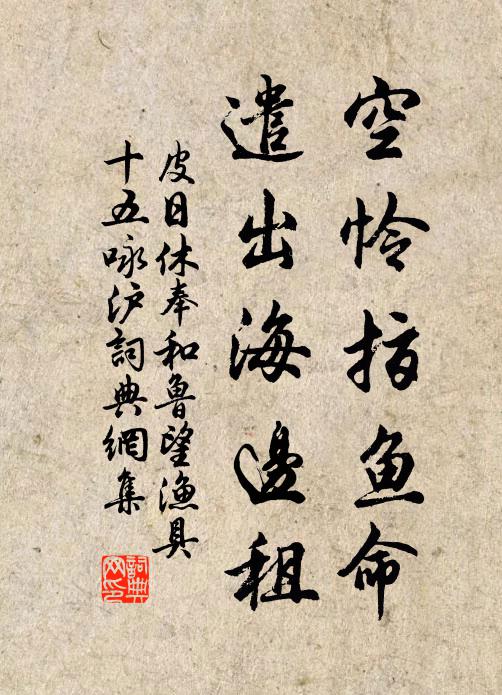 空怜指鱼命
遣出海邊租
皮日休奉和鲁望渔具
十五咏沪詞典網集
詞典网印